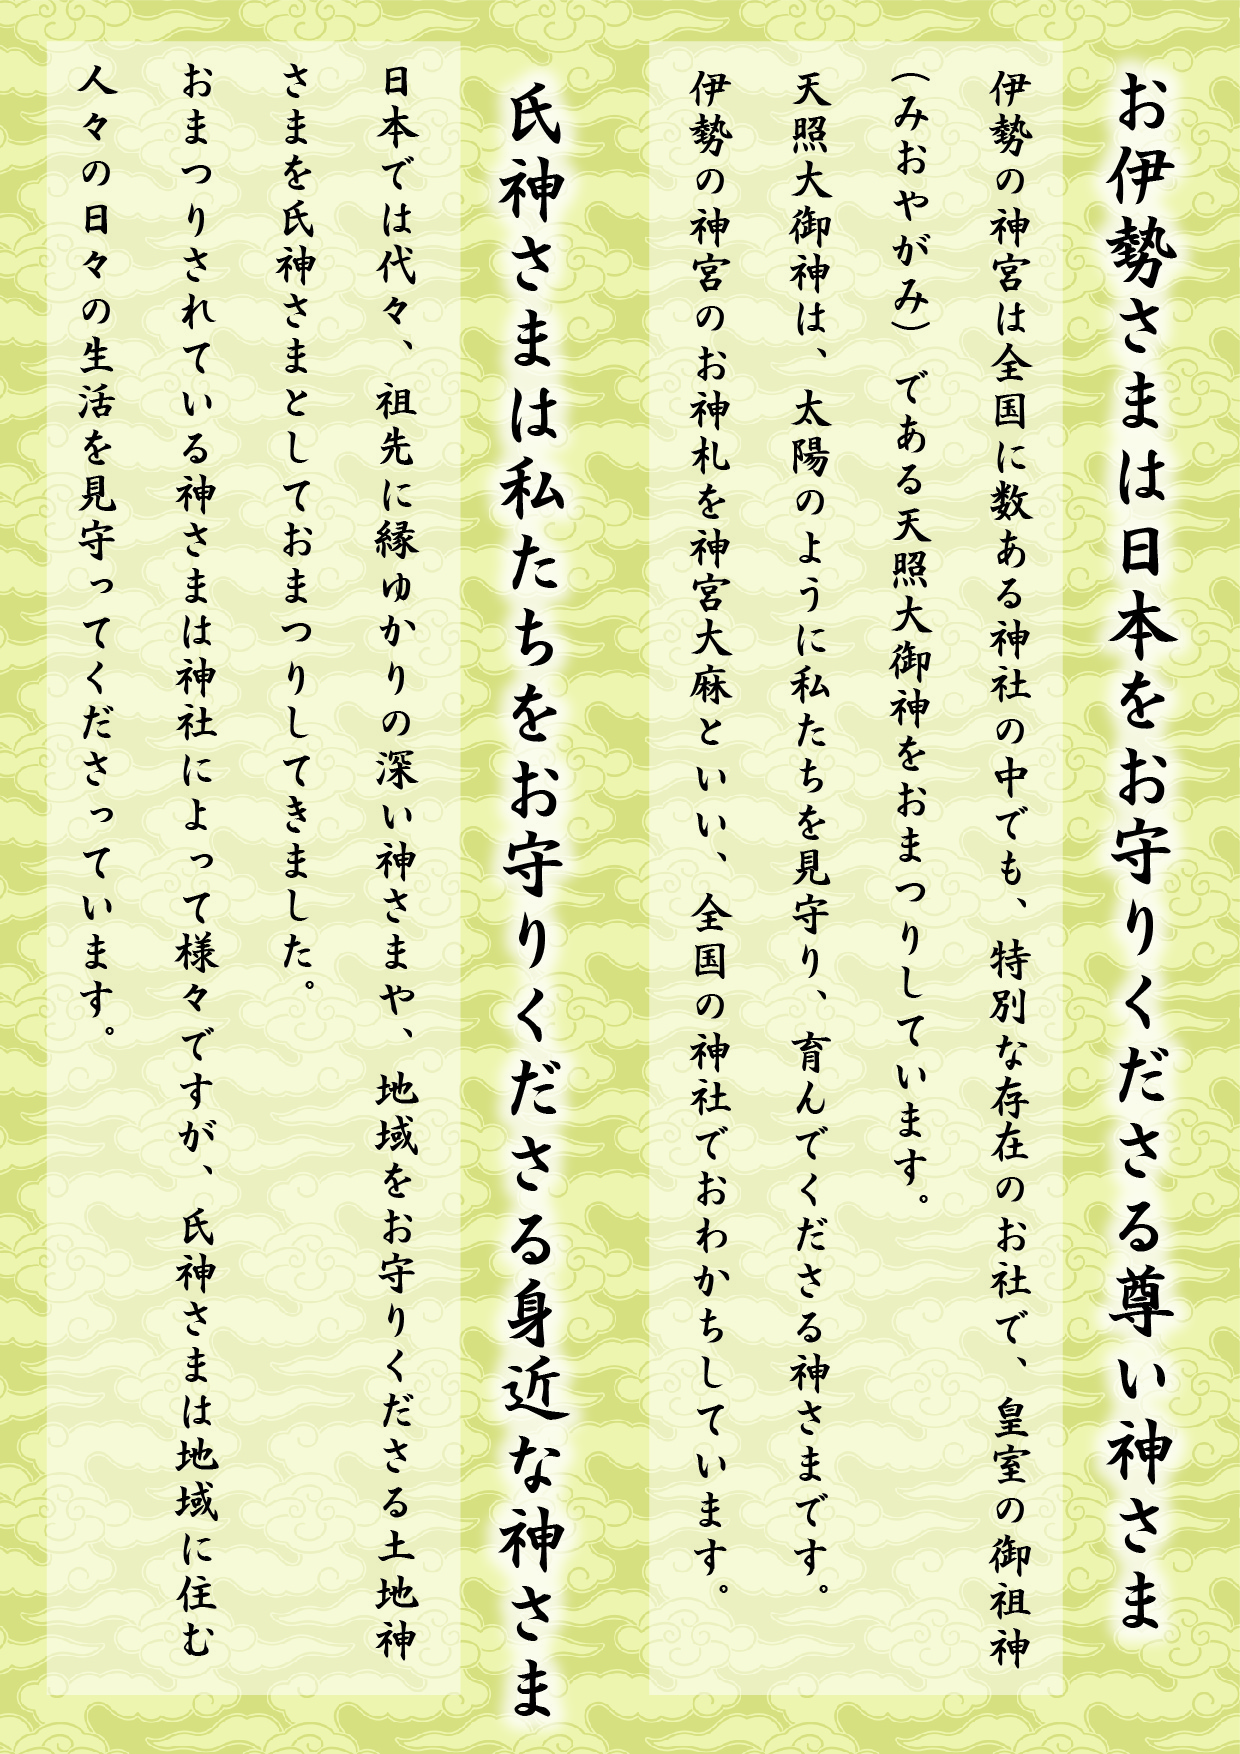 お伊勢さまは日本をお守りくださる尊い神さま
伊勢の神宮は全国に数ある神社の中でも、特別な存在のお社で、皇室の御祖神
（みおやがみ）である天照大御神をおまつりしています。
天照大御神は、太陽のように私たちを見守り、育んでくださる神さまです。
伊勢の神宮のお神札を神宮大麻といい、全国の神社でおわかちしています。
氏神さまは私たちをお守りくださる身近な神さま
日本では代々、祖先に縁ゆかりの深い神さまや、地域をお守りくださる土地神
さまを氏神さまとしておまつりしてきました。
おまつりされている神さまは神社によって様々ですが、氏神さまは地域に住む
人々の日々の生活を見守ってくださっています。